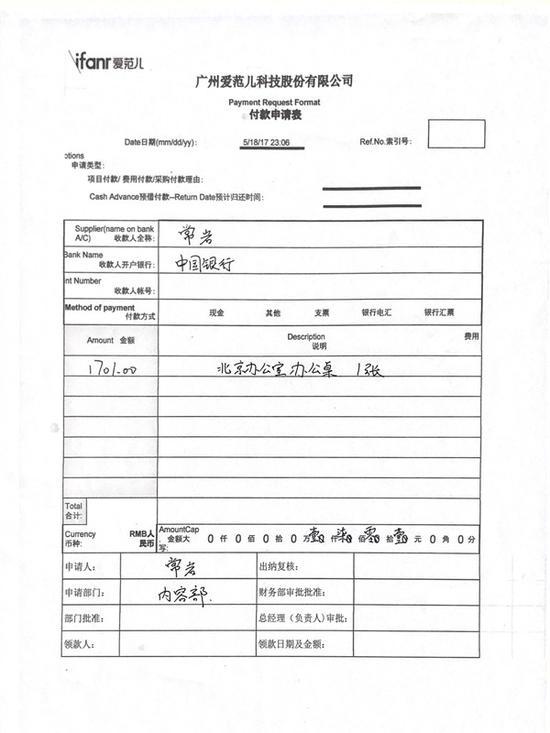 ifanr 爱范儿
广州爱范儿科技股份有限公司
Payment Request Format
付款申请表
Date日期(mm/dd/yy): 5/18/17 23:06 Ref.No.索引号:
ptions
申请类型:
项目付款/ 费用付款/采购付款理由:
Cash Advance预借付款--Return Date预计归还时间:
Supplier(name on bank
A/C) 收款人全称: 常岩
Bank Name
收款人开户银行: 中国银行
nt Number
收款人帐号:
Method of payment
付款方式 现金 其他 支票 银行电汇 银行汇票
Amount 金额 Description 费用
说明
1701.00 北京办公室办公桌 1张
Total
合计:
Currency RMB人 AmountCap
币种: 民币 金额大 0 仟 0 佰 0 拾 0 万 壹 仟 柒 佰 零 拾 壹 元 0 角 0 分
写:
申请人: 常岩 出纳复核:
申请部门: 内容部. 财务部审批批准:
部门批准: 总经理（负责人)审批:
领款人: 领款日期及金额: